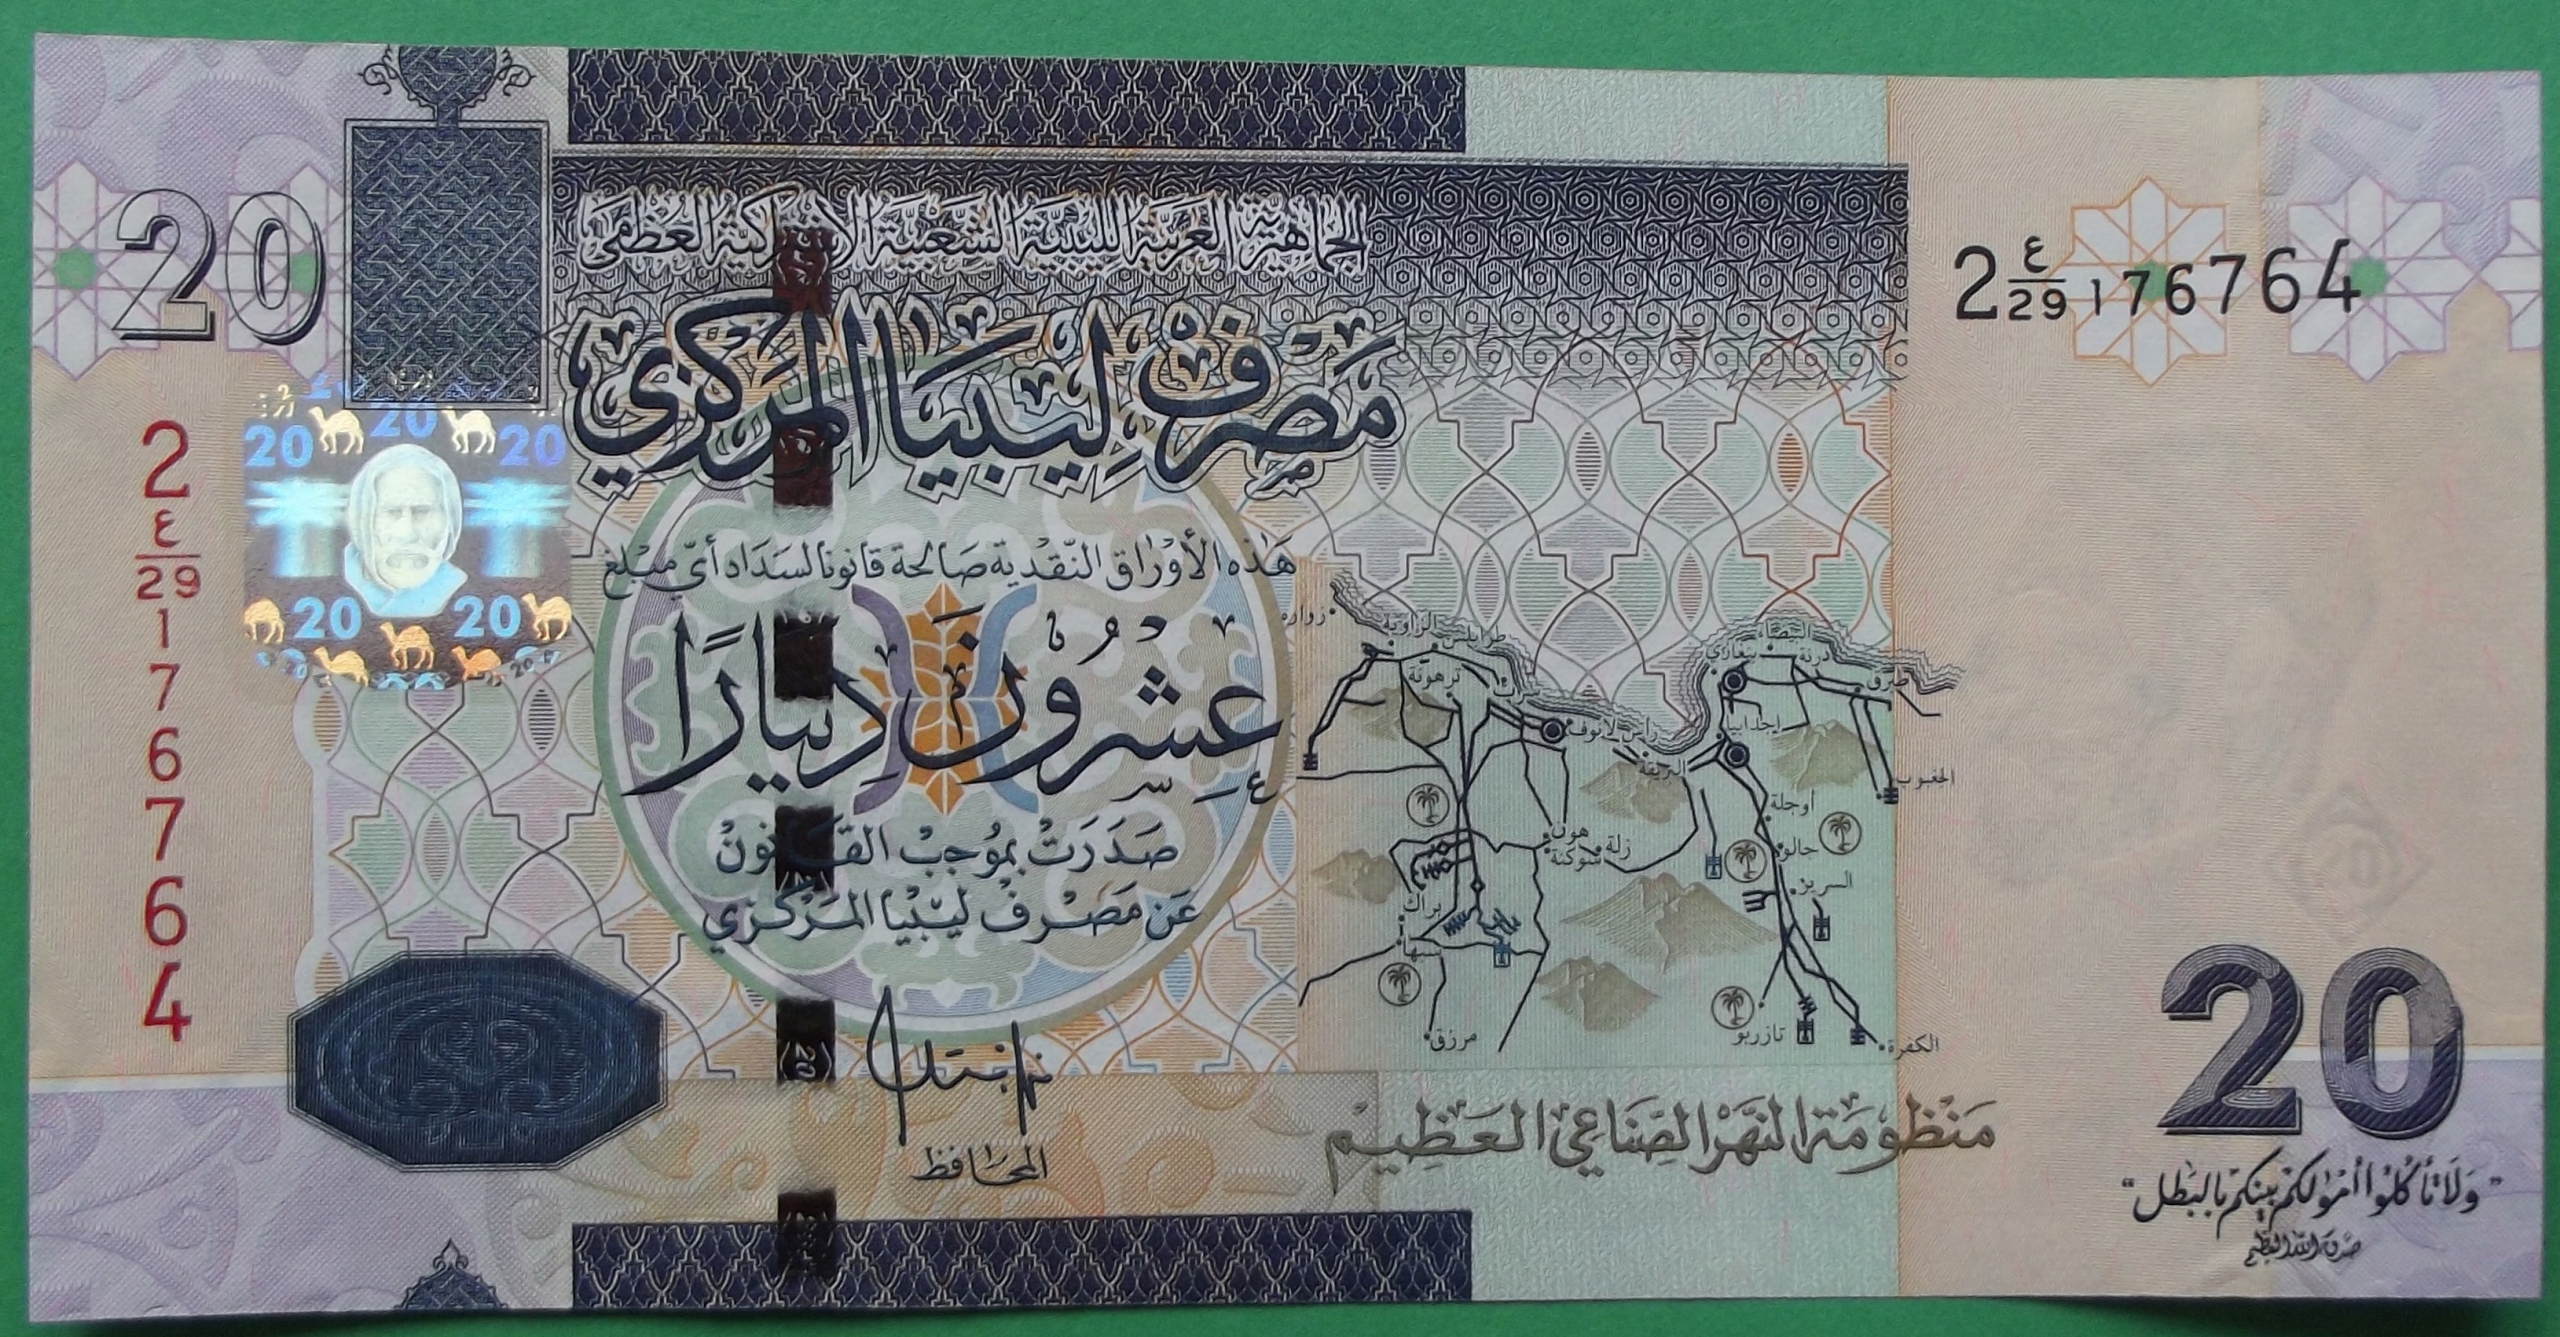 الجماهيرية العربية الليبية الشعبية الاشتراكية العظمى
20
2 ع/29 176764
مصرف ليبيا المركزي
2
ع
29
1
7
6
7
6
4
20 20 20
20 20
هذه الأوراق النقدية صالحة قانونا لسداد أي مبلغ
عشرون دينارًا
صدرت بموجب القانون
عن مصرف ليبيا المركزي
المحافظ
زواره
الزاوية
طرابلس
ترهونة
البيضاء
درنة
بنغازي
طبرق
اجدابيا
راس لانوف
البريقة
الجغبوب
أوجلة
جالو
هون
زلة
سوكنة
السرير
براك
سبها
مرزق
تازربو
الكفرة
منظومة النهر الصناعي العظيم
20
"ولا تأكلوا أموالكم بينكم بالبطل"
صدق الله العظيم
20